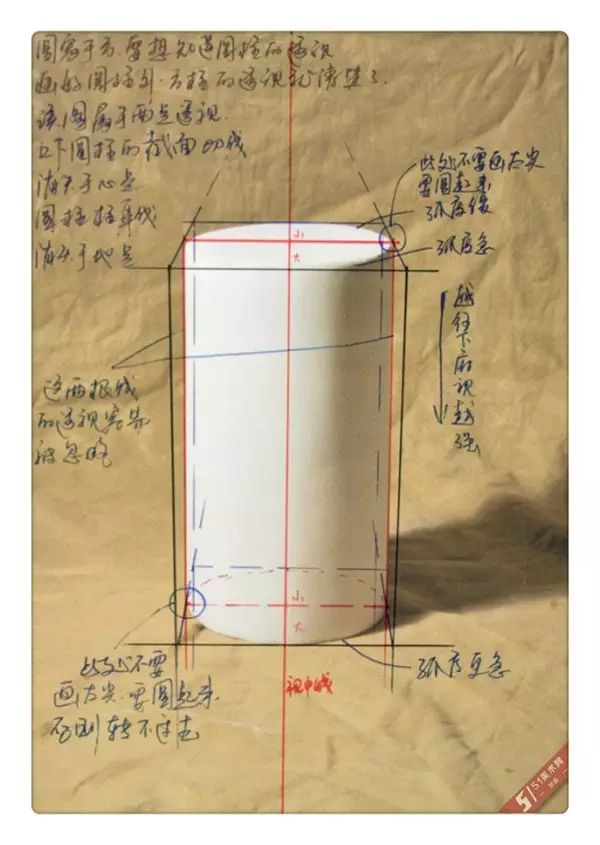 圆家于方，要想知道圆柱的透视
画好圆柱外方柱的透视就清楚了.
该图属于两点透视.
上下圆柱的截面切线
消失于心点
圆柱柱身线
消失于地点
此处不要画太尖
要圆起来
弧度缓
弧度急
小
大
越往下俯视越强
这两根线
的透视容易
被忽略
小
大
此处不要
画太尖.要圆起来.
否则转不过去
弧度更急
视中线
51美术网